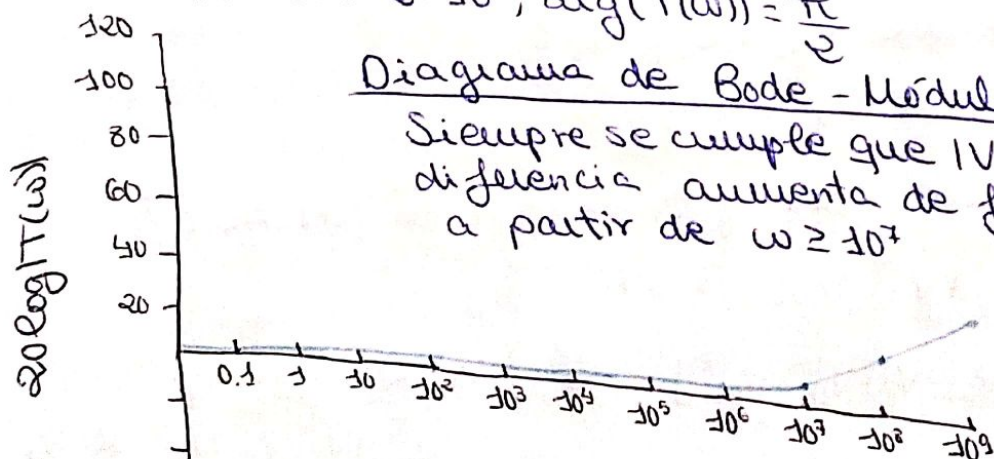 arg(T(ω)) = π/2
Diagrama de Bode - Módul
Siempre se cumple que |V
diferencia aumenta de f
a partir de ω ≥ 10⁷
20log|T(ω)|
120
100
80
60
40
20
0.1 1 10 10² 10³ 10⁴ 10⁵ 10⁶ 10⁷ 10⁸ 10⁹